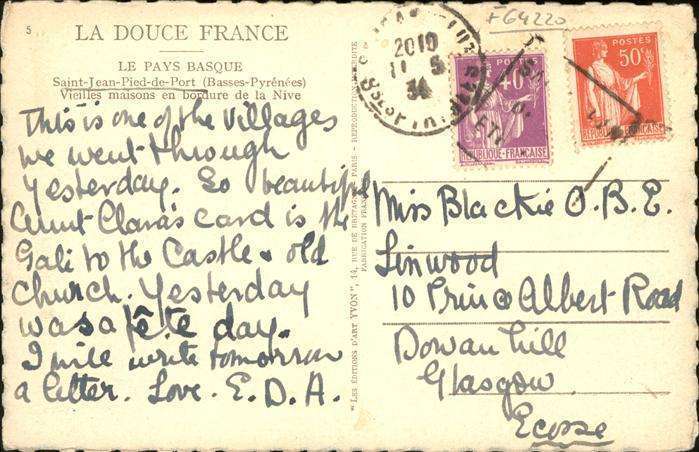 5
LA DOUCE FRANCE
LE PAYS BASQUE
Saint-Jean-Pied-de-Port (Basses-Pyrénées)
Vieilles maisons en bordure de la Nive
This is one of the villages
we went through
yesterday. So beautiful
Aunt Clara's card is the
Gate to the Castle & old
church. Yesterday
was a fête day.
I will write tomorrow
a letter. Love. E.D.A.
"LES ÉDITIONS D'ART YVON", 14, RUE DE BRETAGNE, PARIS - REPRODUCTION INTERDITE
FABRICATION FRANÇAISE
F64220
2010
11 5
34
POSTES
40c
REPUBLIQUE-FRANÇAISE
POSTES
50c
REPUBLIQUE FRANÇAISE
Miss Blackie O.B.E.
Linwood
10 Prince Albert Road
Dowanhill
Glasgow
Ecosse